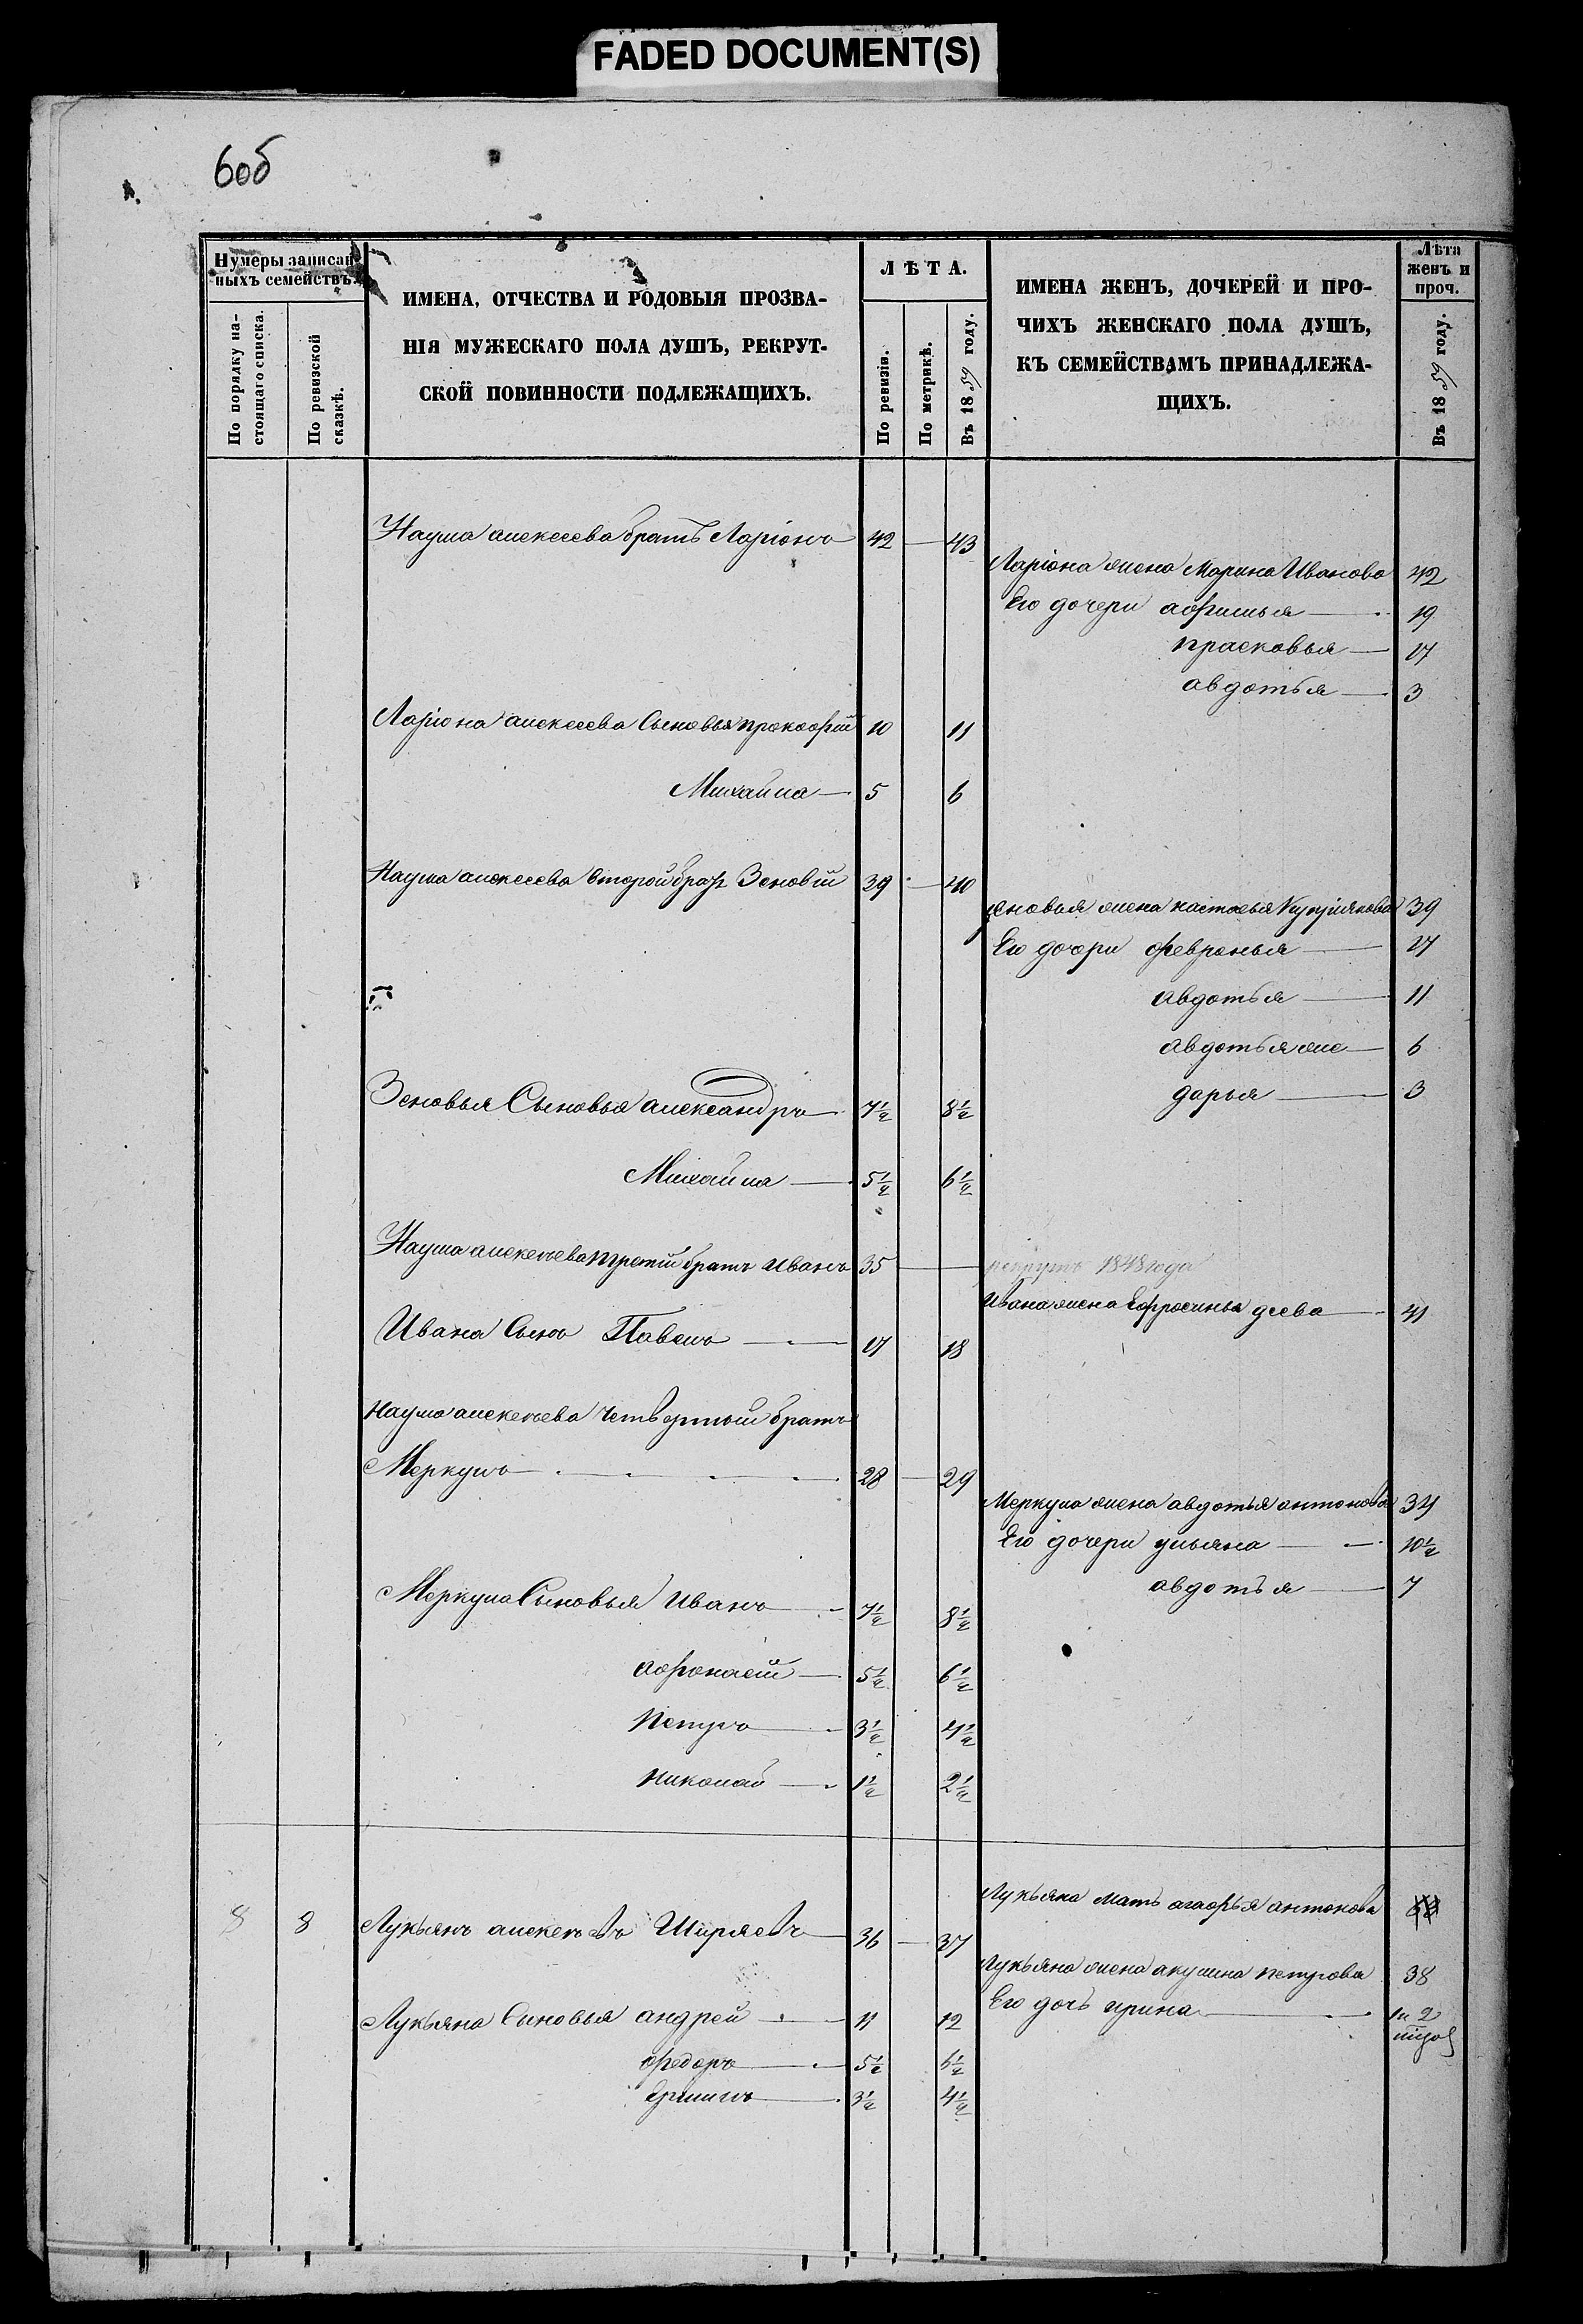 FADED DOCUMENT(S)
6об
Нумеры записан-
ныхъ семействъ.
По порядку на-
стоящаго списка.
По ревизской
сказкѣ.
ИМЕНА, ОТЧЕСТВА И РОДОВЫЯ ПРОЗВА-
НІЯ МУЖЕСКАГО ПОЛА ДУШЪ, РЕКРУТ-
СКОЙ ПОВИННОСТИ ПОДЛЕЖАЩИХЪ.
ЛѢТА.
По ревизіи.
По метрикѣ.
Въ 1859 году.
ИМЕНА ЖЕНЪ, ДОЧЕРЕЙ И ПРО-
ЧИХЪ ЖЕНСКАГО ПОЛА ДУШЪ,
КЪ СЕМЕЙСТВАМЪ ПРИНАДЛЕЖА-
ЩИХЪ.
Лѣта
женъ и
проч.
Въ 1859 году.
Наума алексеева братъ Ларіонъ 42 — 43
Ларіона жена Марина Иванова 42
Его дочери афимья — 19
прасковья — 17
авдотья — 3
Ларіона алексеева Сыновья прокофій 10 11
Михайла — 5 6
Наума алексеева второй братъ Зеновій 39 — 40
зеновья жена настасья Купріянова 39
Его дочери февронья — 17
авдотья — 11
авдотья же — 6
дарья — 3
Зеновья Сыновья александръ 7½ 8½
Михайла — 5½ 6½
Наума алексеева третій братъ иванъ 35 —
рекрутъ 1848 года
Ивана жена Ефросинья деева — 41
Ивана Сынъ Павелъ — 17 18
наума алексеева Четвертый братъ
Меркулъ — 28 — 29
Меркула жена авдотья антонова 34
Его дочери ульяна — 10½
авдотья — 7
Меркула Сыновья иванъ — 7½ 8½
афонасій — 5½ 6½
петръ — 3½ 4½
николай — 1½ 2½
8 8 Лукьянъ алексеевъ Ширяевъ 36 — 37
Лукьяна мать агафья антонова
Лукьяна жена акулина петрова 38
Его дочь ирина —
Лукьяна Сыновья андрей — 11 12
федоръ — 5½ 6½
— 3½ 4½